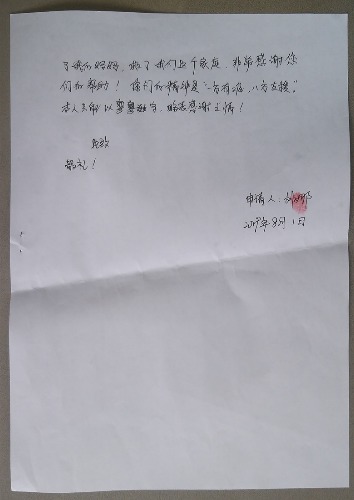 了我们妈妈，救了我们这个家庭，非常感谢您
们的帮助！你们的精神是“一方有难，八方支援”
本人只能以寥寥数字，略表感谢之情！
此致
敬礼！
申请人：
2019年8月1日